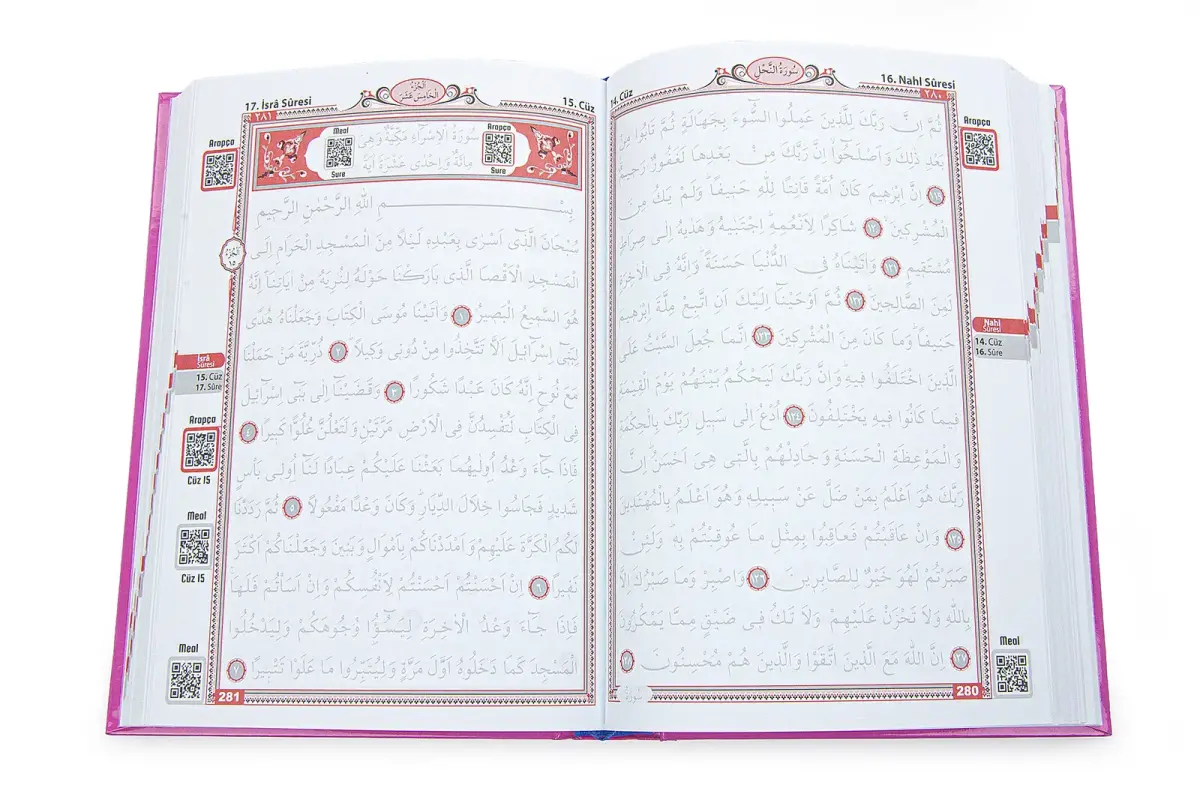 14. Cüz
سُورَةُ النَّحْلِ
16. Nahl Sûresi
٢٨٠
Arapça
ثُمَّ اِنَّ رَبَّكَ لِلَّذِينَ عَمِلُوا السُّوٓءَ بِجَهَالَةٍ ثُمَّ تَابُوا مِنْ
بَعْدِ ذٰلِكَ وَاَصْلَحُٓوا اِنَّ رَبَّكَ مِنْ بَعْدِهَا لَغَفُورٌ رَحِيمٌ
اِنَّ اِبْرٰهِيمَ كَانَ اُمَّةً قَانِتًا لِلّٰهِ حَنِيفًا وَلَمْ يَكُ مِنَ
الْمُشْرِكِينَ شَاكِرًا لِاَنْعُمِهِ اِجْتَبٰيهُ وَهَدٰيهُ اِلٰى صِرَاطٍ
مُسْتَقِيمٍ وَاٰتَيْنَاهُ فِي الدُّنْيَا حَسَنَةً وَاِنَّهُ فِي الْاٰخِرَةِ
لَمِنَ الصَّالِحِينَ ثُمَّ اَوْحَيْنَٓا اِلَيْكَ اَنِ اتَّبِعْ مِلَّةَ اِبْرٰهِيمَ
حَنِيفًا وَمَا كَانَ مِنَ الْمُشْرِكِينَ اِنَّمَا جُعِلَ السَّبْتُ عَلَى
الَّذِينَ اخْتَلَفُوا فِيهِ وَاِنَّ رَبَّكَ لَيَحْكُمُ بَيْنَهُمْ يَوْمَ الْقِيٰمَةِ
فِيمَا كَانُوا فِيهِ يَخْتَلِفُونَ اُدْعُ اِلٰى سَبِيلِ رَبِّكَ بِالْحِكْمَةِ
وَالْمَوْعِظَةِ الْحَسَنَةِ وَجَادِلْهُمْ بِالَّتِي هِيَ اَحْسَنُ اِنَّ
رَبَّكَ هُوَ اَعْلَمُ بِمَنْ ضَلَّ عَنْ سَبِيلِهِ وَهُوَ اَعْلَمُ بِالْمُهْتَدِينَ
١٢٥ وَاِنْ عَاقَبْتُمْ فَعَاقِبُوا بِمِثْلِ مَا عُوقِبْتُمْ بِهِ وَلَئِنْ
صَبَرْتُمْ لَهُوَ خَيْرٌ لِلصَّابِرِينَ ١٢٦ وَاصْبِرْ وَمَا صَبْرُكَ اِلَّا
بِاللّٰهِ وَلَا تَحْزَنْ عَلَيْهِمْ وَلَا تَكُ فِي ضَيْقٍ مِمَّا يَمْكُرُونَ
١٢٧ اِنَّ اللّٰهَ مَعَ الَّذِينَ اتَّقَوْا وَالَّذِينَ هُمْ مُحْسِنُونَ ١٢٨
280
Nahl
Sûresi
14. Cüz
16. Sûre
Meal
17. İsrâ Sûresi
اَلْجُزْءُ
الْخَامِسَ عَشَرَ
15. Cüz
٢٨١
Arapça
Meal
Sure
سُورَةُ الْاِسْرَٓاءِ مَكِّيَّةٌ وَهِيَ
مِائَةٌ وَاِحْدٰى عَشْرَةَ اٰيَةً
Arapça
Sure
بِسْمِ اللّٰهِ الرَّحْمٰنِ الرَّحِيمِ
سُبْحَانَ الَّذِٓي اَسْرٰى بِعَبْدِهِ لَيْلًا مِنَ الْمَسْجِدِ الْحَرَامِ اِلَى
الْمَسْجِدِ الْاَقْصَا الَّذِي بَارَكْنَا حَوْلَهُ لِنُرِيَهُ مِنْ اٰيَاتِنَا اِنَّهُ
هُوَ السَّمِيعُ الْبَصِيرُ ١ وَاٰتَيْنَا مُوسَى الْكِتَابَ وَجَعَلْنَاهُ هُدًى
لِبَنِٓي اِسْرَٓائِيلَ اَلَّا تَتَّخِذُوا مِنْ دُونِي وَكِيلًا ٢ ذُرِّيَّةَ مَنْ حَمَلْنَا
مَعَ نُوحٍ اِنَّهُ كَانَ عَبْدًا شَكُورًا ٣ وَقَضَيْنَٓا اِلٰى بَنِٓي اِسْرَٓائِيلَ
فِي الْكِتَابِ لَتُفْسِدُنَّ فِي الْاَرْضِ مَرَّتَيْنِ وَلَتَعْلُنَّ عُلُوًّا كَبِيرًا ٤
فَاِذَا جَٓاءَ وَعْدُ اُولٰيهُمَا بَعَثْنَا عَلَيْكُمْ عِبَادًا لَنَٓا اُولِي بَأْسٍ
شَدِيدٍ فَجَاسُوا خِلَالَ الدِّيَارِ وَكَانَ وَعْدًا مَفْعُولًا ٥ ثُمَّ رَدَدْنَا
لَكُمُ الْكَرَّةَ عَلَيْهِمْ وَاَمْدَدْنَاكُمْ بِاَمْوَالٍ وَبَنِينَ وَجَعَلْنَاكُمْ اَكْثَرَ
نَفِيرًا ٦ اِنْ اَحْسَنْتُمْ اَحْسَنْتُمْ لِاَنْفُسِكُمْ وَاِنْ اَسَأْتُمْ فَلَهَا
فَاِذَا جَٓاءَ وَعْدُ الْاٰخِرَةِ لِيَسُٓوؤُا وُجُوهَكُمْ وَلِيَدْخُلُوا
الْمَسْجِدَ كَمَا دَخَلُوهُ اَوَّلَ مَرَّةٍ وَلِيُتَبِّرُوا مَا عَلَوْا تَتْبِيرًا ٧
281
اَلْجُزْءُ
١٥
İsrâ
Sûresi
15. Cüz
17. Sûre
Arapça
Cüz 15
Meal
Cüz 15
Meal